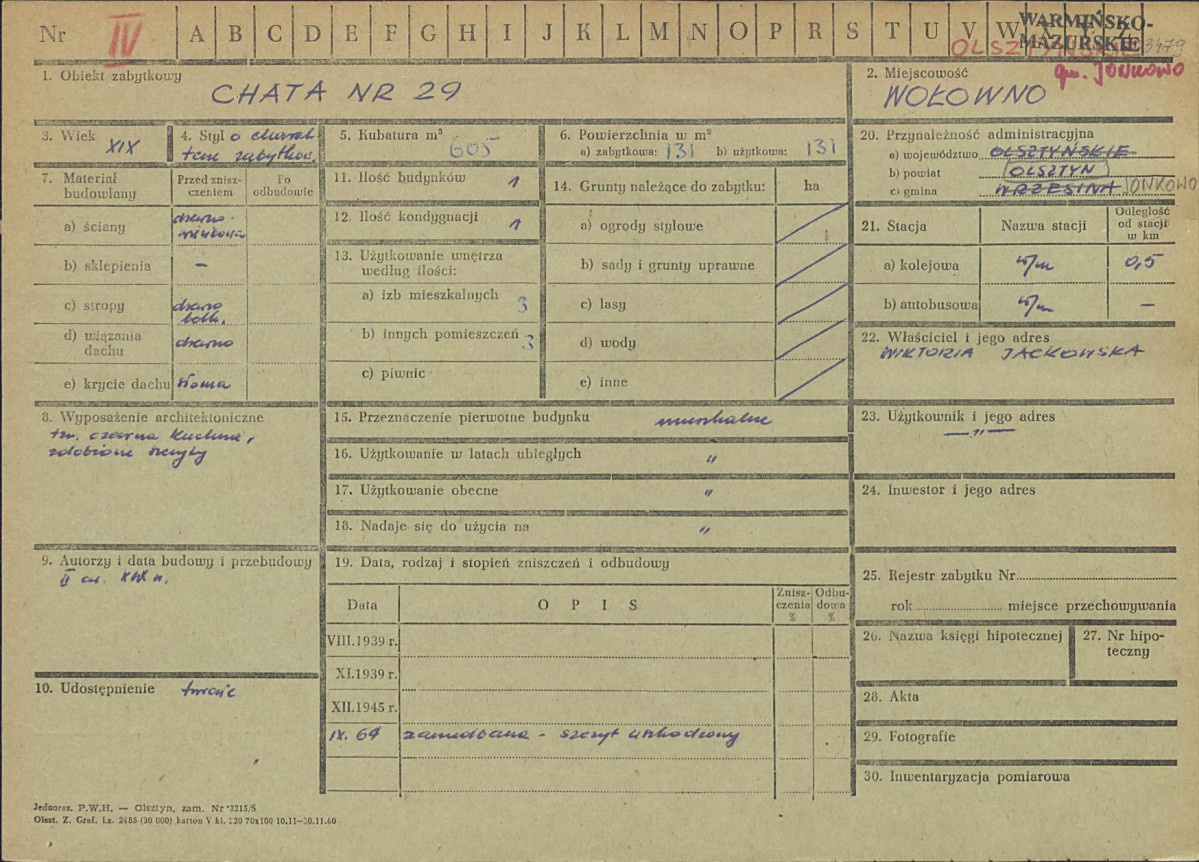 Nr IV A B C D E F G H I J K L M N O P R S T U V W
WARMIŃSKO-
MAZURSKIE
OLSZTYŃSKIE 3479
gm. JONKOWO
1. Obiekt zabytkowy
CHATA NR 29
2. Miejscowość
WOŁOWNO
3. Wiek XIX
4. Styl o charak-
terze zabytkow.
5. Kubatura m³ 605
6. Powierzchnia w m²
a) zabytkowa: 131 b) użytkowa: 131
7. Materiał budowlany
Przed znisz-
czeniem
Po
odbudowie
a) ściany drewno-
b) sklepienia –
c) stropy drewno
belk.
d) wiązania
dachu drewno
e) krycie dachu słoma
8. Wyposażenie architektoniczne
tzw. czarna kuchnia,
zdobione szczyty
9. Autorzy i data budowy i przebudowy
II ćw. XIX w.
10. Udostępnienie
11. Ilość budynków 1
12. Ilość kondygnacji 1
13. Użytkowanie wnętrza
według ilości:
a) izb mieszkalnych 3
b) innych pomieszczeń 3
c) piwnic
14. Grunty należące do zabytku: ha
a) ogrody stylowe
b) sady i grunty uprawne
c) lasy
d) wody
e) inne
15. Przeznaczenie pierwotne budynku mieszkalne
16. Użytkowanie w latach ubiegłych "
17. Użytkowanie obecne "
18. Nadaje się do użycia na "
19. Data, rodzaj i stopień zniszczeń i odbudowy
Data OPIS Znisz-
czenia
% Odbu-
dowa
%
VIII.1939 r.
XI.1939 r.
XII.1945 r.
IX. 64 zaniedbana - szczyt uszkodzony
20. Przynależność administracyjna
a) województwo OLSZTYŃSKIE
b) powiat OLSZTYN
c) gmina WRZESINA JONKOWO
21. Stacja Nazwa stacji Odległość
od stacji
w km
a) kolejowa w/m 0,5
b) autobusowa w/m –
22. Właściciel i jego adres
WIKTORIA JACKOWSKA
23. Użytkownik i jego adres
— " —
24. Inwestor i jego adres
25. Rejestr zabytku Nr
rok miejsce przechowywania
26. Nazwa księgi hipotecznej
27. Nr hipo-
teczny
28. Akta
29. Fotografie
30. Inwentaryzacja pomiarowa
Jednoraz. P.W.H. — Olsztyn, zam. Nr 3215/S
Olszt. Z. Graf. Lz. 2485 (30 000) karton V kl. 220 70x100 10.11—30.11.60